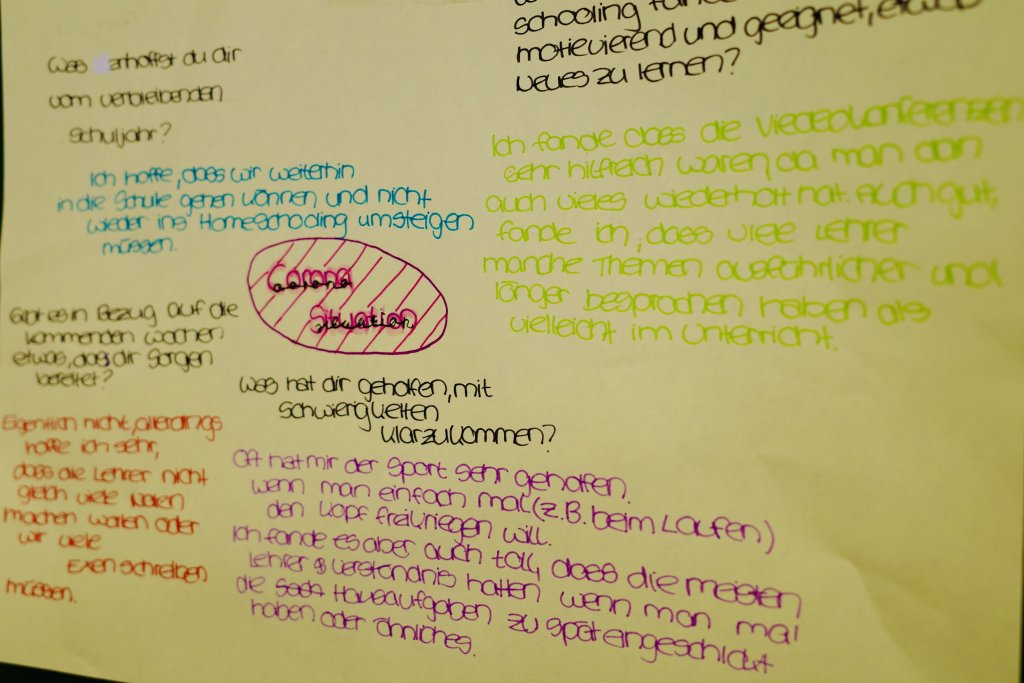 Was erhoffst du dir
vom verbleibenden
Schuljahr?
Ich hoffe, dass wir weiterhin
in die Schule gehen können und nicht
wieder ins Homeschooling umsteigen
müssen.
schooling
motievierend und geeignet, etwas
neues zu lernen?
Ich fande dass die Viedeokonferenzen
sehr hilfreich waren, da man dan
auch vieles wiederholt hat. Auch gut,
fande ich, dass viele Lehrer
manche Themen ausführlicher und
länger besprochen haben als
vielleicht im Unterricht.
Corona
Situation
Gibt es in Bezug auf die
kommenden Wochen
etwas, das dir Sorgen
bereitet?
Eigentlich nicht, allerdings
hoffe ich sehr,
dass die Lehrer nicht
gleich viele Noten
machen wollen oder
wir viele
Exen schreiben
müssen.
Was hat dir geholfen, mit
Schwierigkeiten
klarzukommen?
Oft hat mir der Sport sehr geholfen.
wenn man einfach mal (z.B. beim Laufen)
den Kopf freikriegen will.
Ich fande es aber auch toll, dass die meisten
Lehrer verständnis hatten wenn man mal
die Hausaufgaben zu spät eingeschickt
haben oder ähnliches.